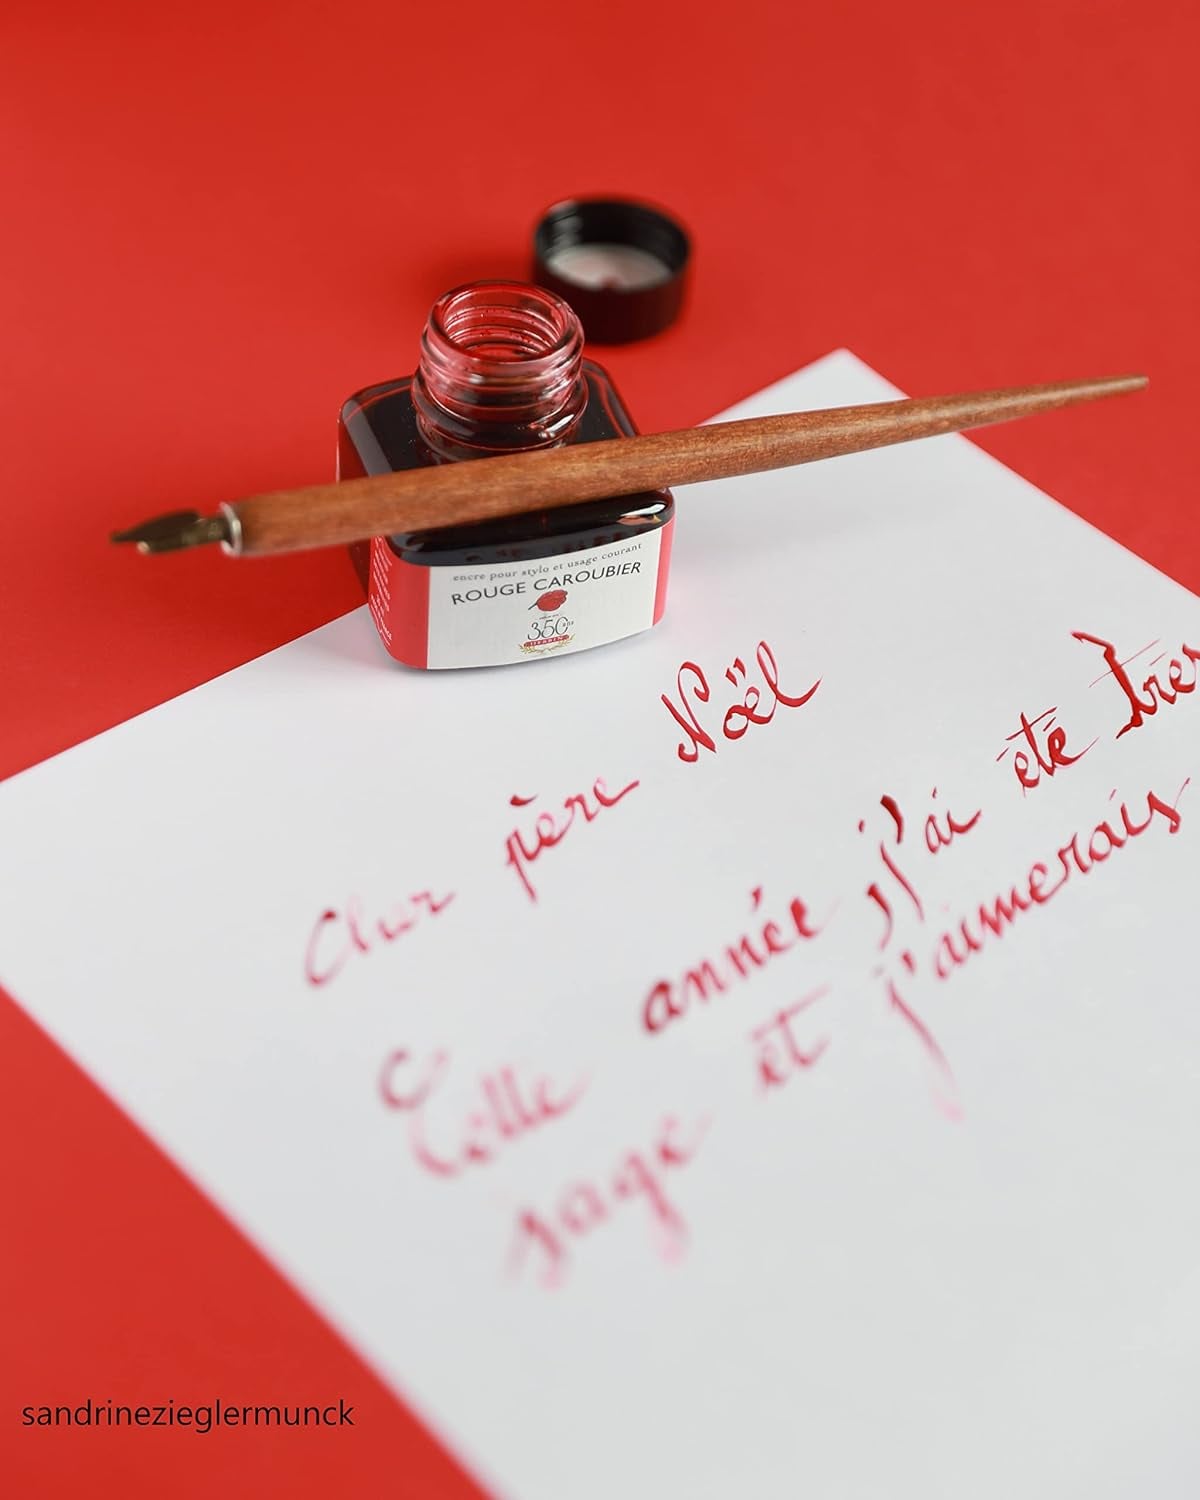 encre pour stylo et usage courant
ROUGE CAROUBIER
350 ans
HERBIN
Cher père Noël
Cette année j'ai été très
sage et j'aimerais
sandrinezieglermunck